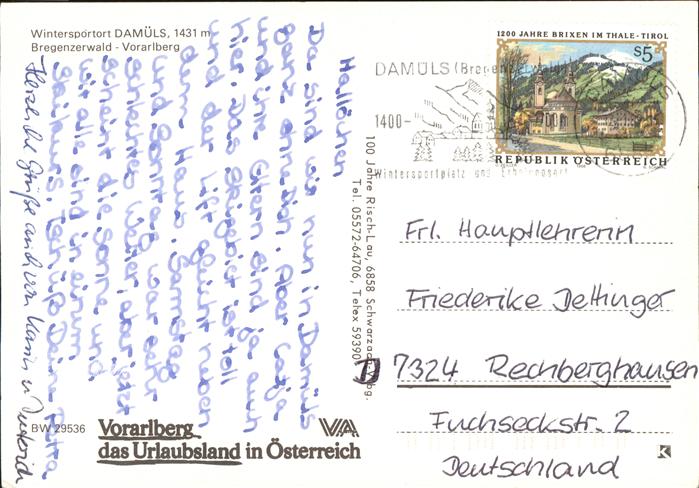 Wintersportort DAMÜLS, 1431 m
Bregenzerwald - Vorarlberg
Hallöchen
Da sind wir nun in Damüls
ganz ohne dich. Aber Katja
und ihre Eltern sind ja auch
hier. Das Skigebiet ist toll
und der Lift gleich neben
dem Haus. Samstag
und Sonntag war sehr
schlechtes Wetter, aber jetzt
scheint die Sonne und
wir alle sind in einem
Skikurs. Tschüß Deine Petra
Herzliche Grüße auch von
BW 29536
Vorarlberg
das Urlaubsland in Österreich
VA
100 Jahre Risch-Lau, 6858 Schwarzach, Vbg.
Tel. 05572-64706, Telex 59390
1200 JAHRE BRIXEN IM THALE - TIROL
S5
REPUBLIK ÖSTERREICH
DAMÜLS (Bregenz
1400-
Wintersportplatz und Erholungsort
Frl. Hauptlehrerin
Friederike Dettinger
D 7324 Rechberghausen
Fuchseckstr. 2
Deutschland
K